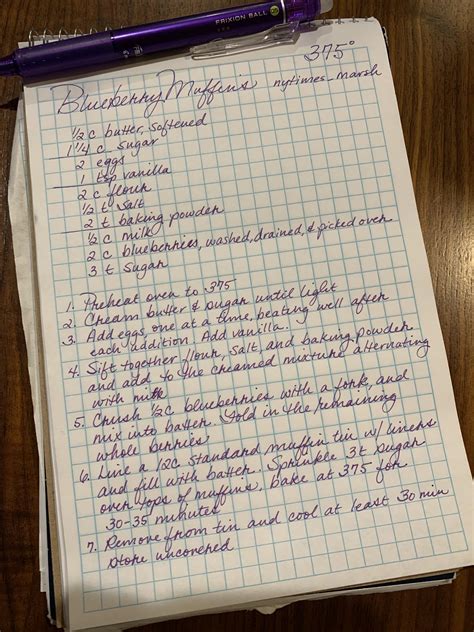 FRIXION BALL
375°
Blueberry Muffins nytimes-marsh
1/2 c butter, softened
1 1/4 c sugar
2 eggs
1 tsp vanilla
2 c flour
1/2 t salt
2 t baking powder
1/2 c milk
2 c blueberries, washed, drained, & picked over
3 t sugar
1. Preheat oven to 375
2. Cream butter & sugar until light
3. Add eggs, one at a time, beating well after
each addition. Add vanilla.
4. Sift together flour, salt, and baking powder
and add to the creamed mixture alternating
with milk
5. Crush 1/2c blueberries with a fork, and
mix into batter. Fold in the remaining
whole berries
6. Line a 12c standard muffin tin w/ liners
and fill with batter. Sprinkle 3t sugar
over tops of muffins, bake at 375 for
30-35 minutes
7. Remove from tin and cool at least 30 min
store uncovered